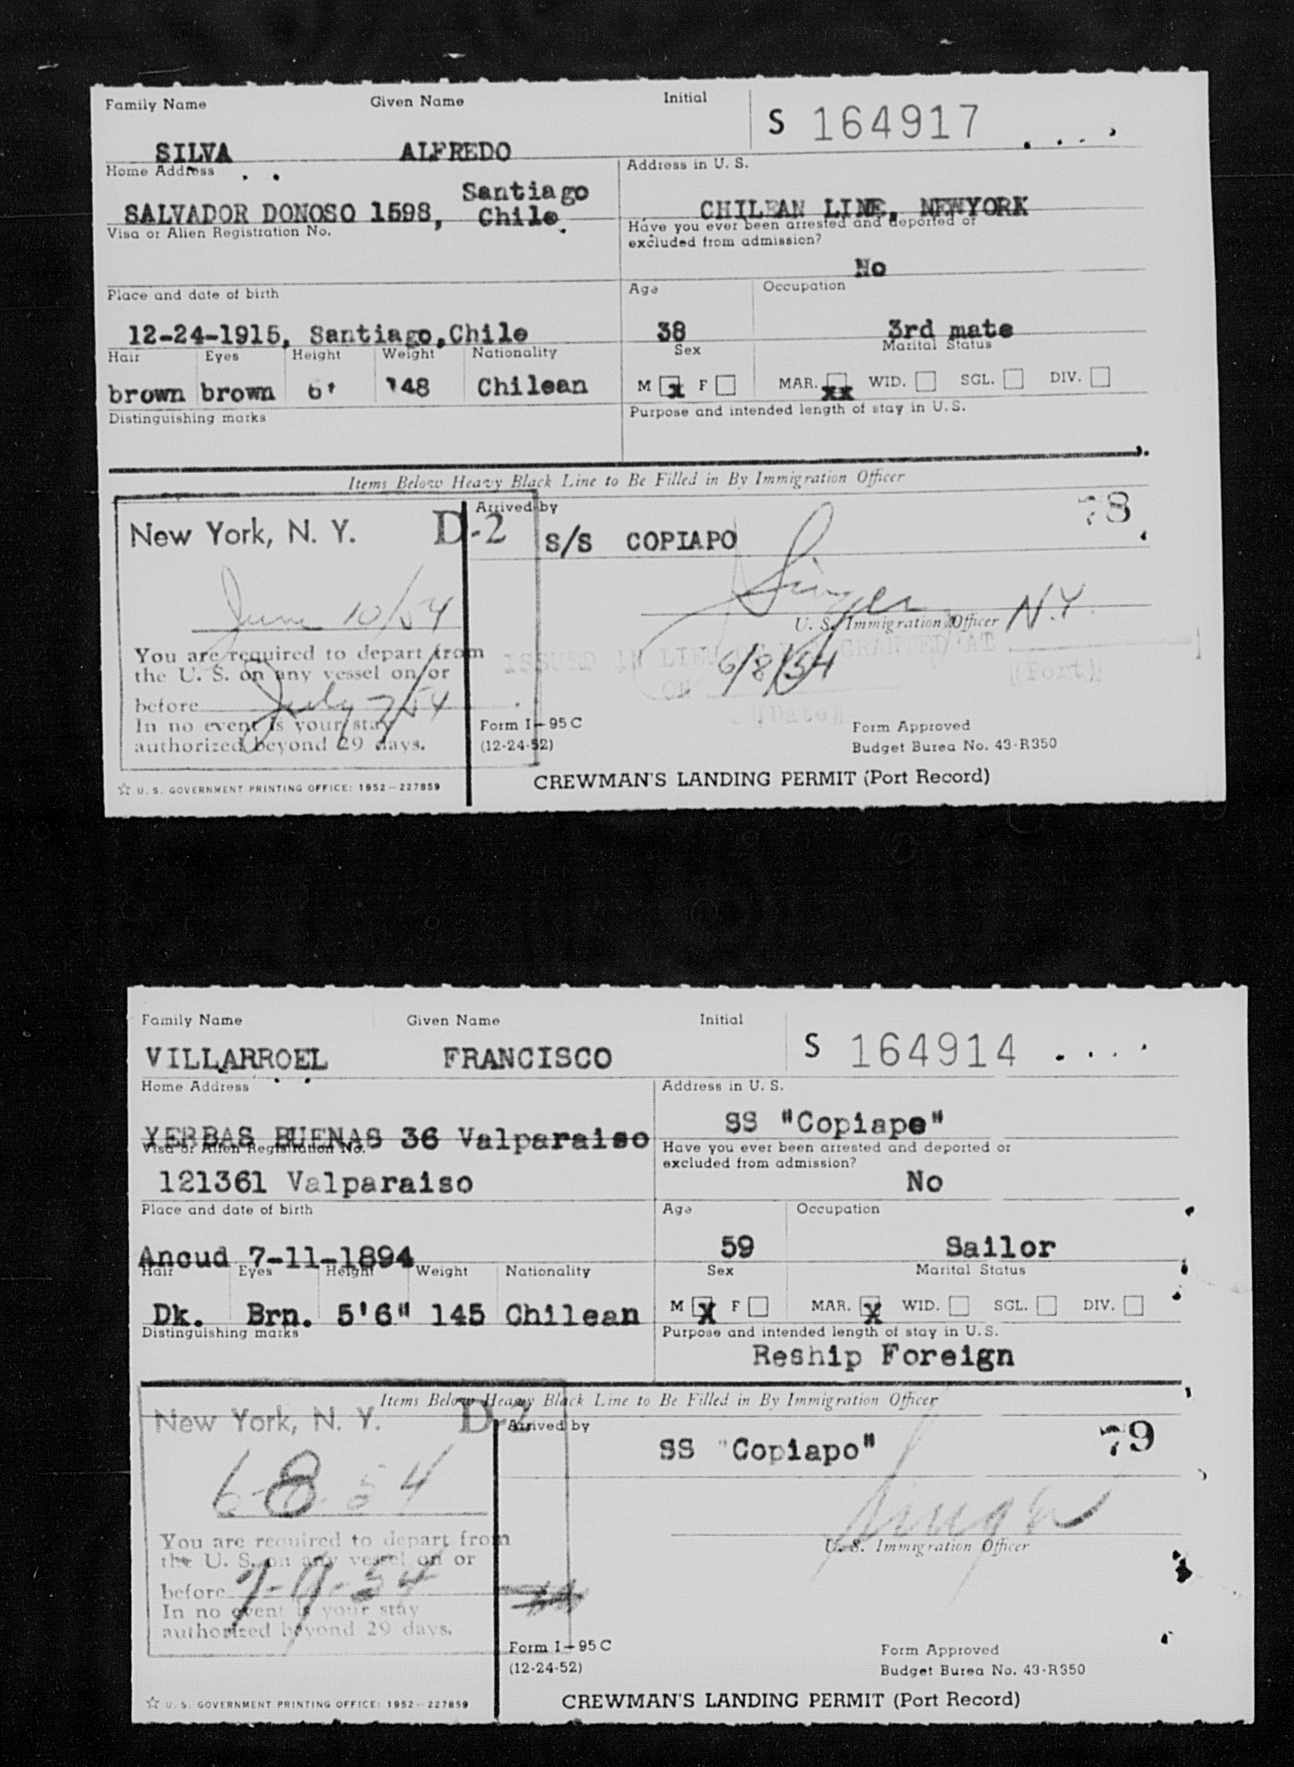 Family Name Given Name Initial S 164917
SILVA ALFREDO
Home Address Address in U. S.
Santiago
SALVADOR DONOSO 1598, Chile CHILEAN LINE, NEWYORK
Visa or Alien Registration No. Have you ever been arrested and deported or
excluded from admission?
No
Place and date of birth Age Occupation
12-24-1915, Santiago,Chile 38 3rd mate
Hair Eyes Height Weight Nationality Sex Marital Status
brown brown 6' 148 Chilean M x F MAR. xx WID. SGL. DIV.
Distinguishing marks Purpose and intended length of stay in U.S.
Items Below Heavy Black Line to Be Filled in By Immigration Officer
Arrived by 78
New York, N. Y. D-2 S/S COPIAPO
June 10/54 Singer N.Y.
U. S. Immigration Officer
You are required to depart from
the U. S. on any vessel on or
ISSUED IN LIEU GRANTED AT
6/8/54 (Port)
before July 7/54
ON
(Date)
In no event is your stay
authorized beyond 29 days.
Form I-95 C Form Approved
(12-24-52) Budget Burea No. 43-R350
☆ U. S. GOVERNMENT PRINTING OFFICE: 1952-227859 CREWMAN'S LANDING PERMIT (Port Record)
Family Name Given Name Initial S 164914
VILLARROEL FRANCISCO
Home Address Address in U. S.
YERBAS BUENAS 36 Valparaiso SS "Copiape"
Visa or Alien Registration No. Have you ever been arrested and deported or
excluded from admission?
121361 Valparaiso No
Place and date of birth Age Occupation
Ancud 7-11-1894 59 Sailor
Hair Eyes Height Weight Nationality Sex Marital Status
Dk. Brn. 5'6" 145 Chilean M X F MAR. X WID. SGL. DIV.
Distinguishing marks Purpose and intended length of stay in U.S.
Reship Foreign
Items Below Heavy Black Line to Be Filled in By Immigration Officer
New York, N. Y. D-2 Arrived by
SS "Copiapo" 79
6-8-54 Singer
You are required to depart from
U. S. Immigration Officer
the U. S. on any vessel on or
before 7-7-54
In no event is your stay
authorized beyond 29 days.
Form I-95 C Form Approved
(12-24-52) Budget Burea No. 43-R350
☆ U. S. GOVERNMENT PRINTING OFFICE: 1952-227859 CREWMAN'S LANDING PERMIT (Port Record)